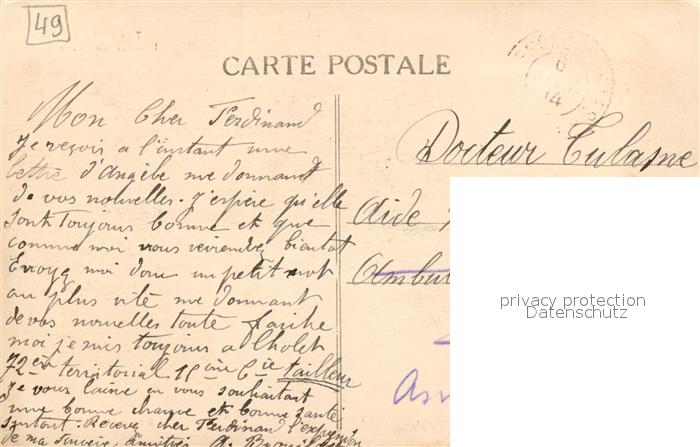 49
CARTE POSTALE
6
14
Mon Cher Ferdinand
Je reçois a l'instant une
lettre d'Angèle me donnant
de vos nouvelles. J'espère qu'elle
sont toujours bonne et que
comme moi vous reviendrez bientot
Evoyez moi donc un petit mot
au plus vite me donnant
de vos nouvelles toute fraiche
moi je suis toujours a Cholet
72em territorial 15eme Cie tailleur
Je vous laisse en vous souhaitant
une bonne chance et bonne santé
surtout. Recevez cher Ferdinand l'expression
de ma sincère amitiés A.
Docteur Tulasne
Aide
Ambu
privacy protection
Datenschutz